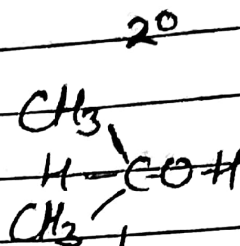 2°
CH3
H-C-O-H
CH3